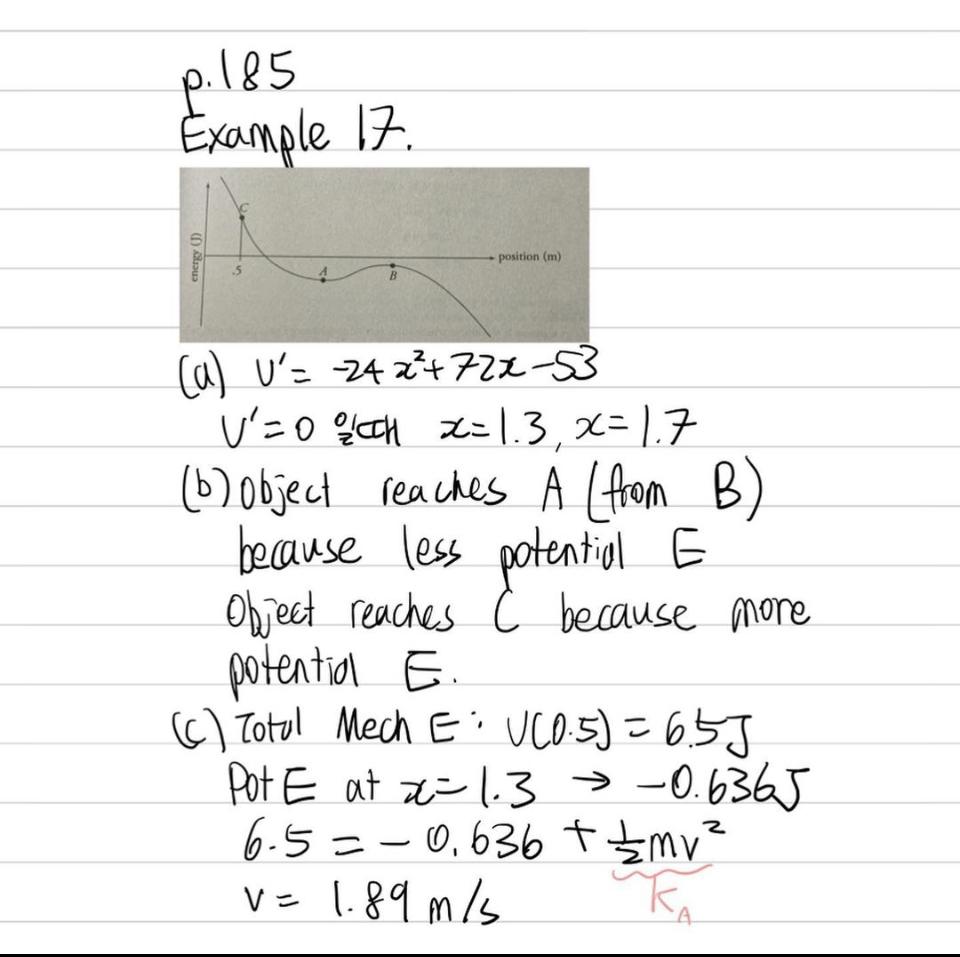 p.185
Example 17.
energy (J)
C
.5
A
B
position (m)
(a) U'= -24x²+72x-53
U'=0 일때 x=1.3, x=1.7
(b) Object reaches A (from B)
because less potential E
Object reaches C because more
potential E.
(c) Total Mech E: U(0.5) = 6.5J
Pot E at x=1.3 → -0.636J
6.5 = -0.636 + ½mv²
K_A
v= 1.89 m/s